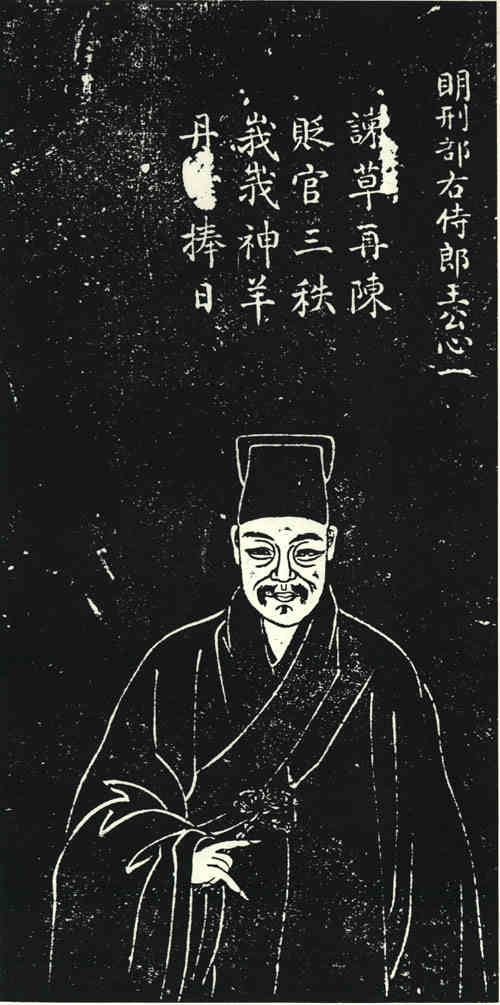 明刑部右侍郎王公心一
諫草再陳
貶官三秩
峩峩神羊
丹捧日